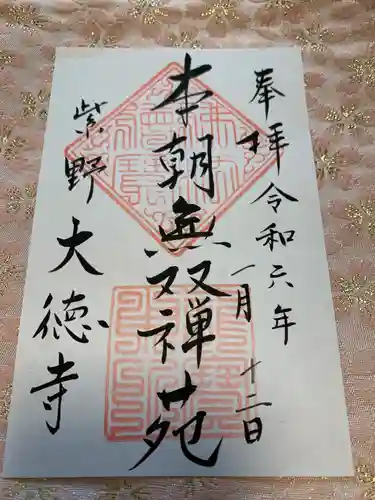 奉拝 令和六年 一月 十二日
本朝無双禅苑
紫野 大徳寺